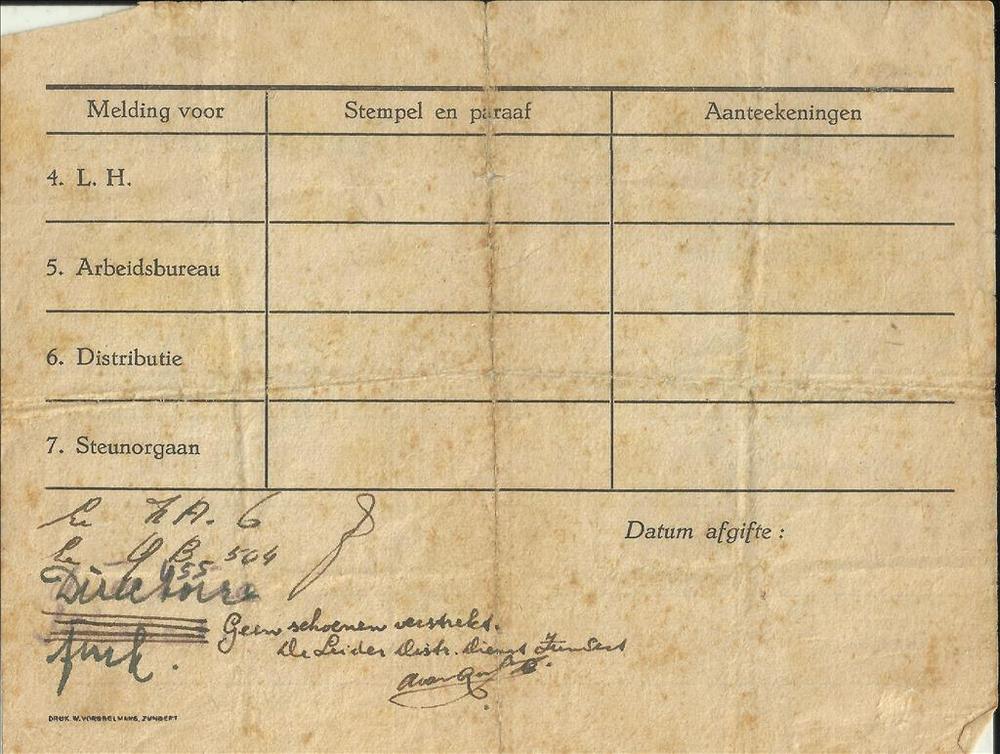 Melding voor Stempel en paraaf Aanteekeningen
4. L. H.
5. Arbeidsbureau
6. Distributie
7. Steunorgaan
Z A. 6
B 504
Datum afgifte :
Directoire
Geen schoenen verstrekt.
De Leider Distr. Dienst Zundert
DRUK. W. VORSSELMANS, ZUNDERT